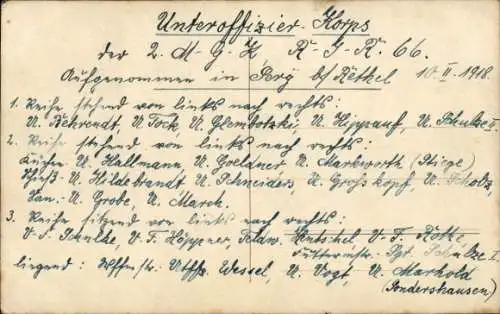 Unteroffizier-Korps
der 2. M-G-K R-I-R. 66.
Aufgenommen in Perg b/Rethel 10.II.1918.
1. Reihe stehend von links nach rechts:
U. Behrendt, U. Tock, U. Glembotzki, U. Hippauf, U. Schulze II
2. Reihe stehend von links nach rechts:
U. Hallmann U. Goeldner U. Markworth (Stiege)
U. Hildebrandt U. Schneider, U. Großkopf, U. Scholz,
San.: U. Grobe, U. March.
3. Reihe sitzend von links nach rechts:
V.F. Schulke, V.F. Höppner, Feldw. Hentschel V.F. Rothe
Futtermstr. Sgt. Schulze I
liegend: Wffmstr. Utffz. Wessel, U. Vogt, U. Marhold
(Sondershausen)